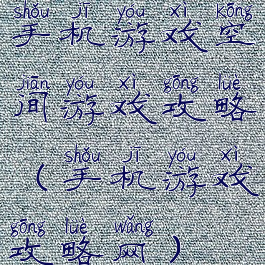 shǒu jī yóu xì kōng
手机游戏空
jiān yóu xì gōng lüè
间游戏攻略
shǒu jī yóu xì
（手机游戏
gōng lüè wǎng
攻略网）